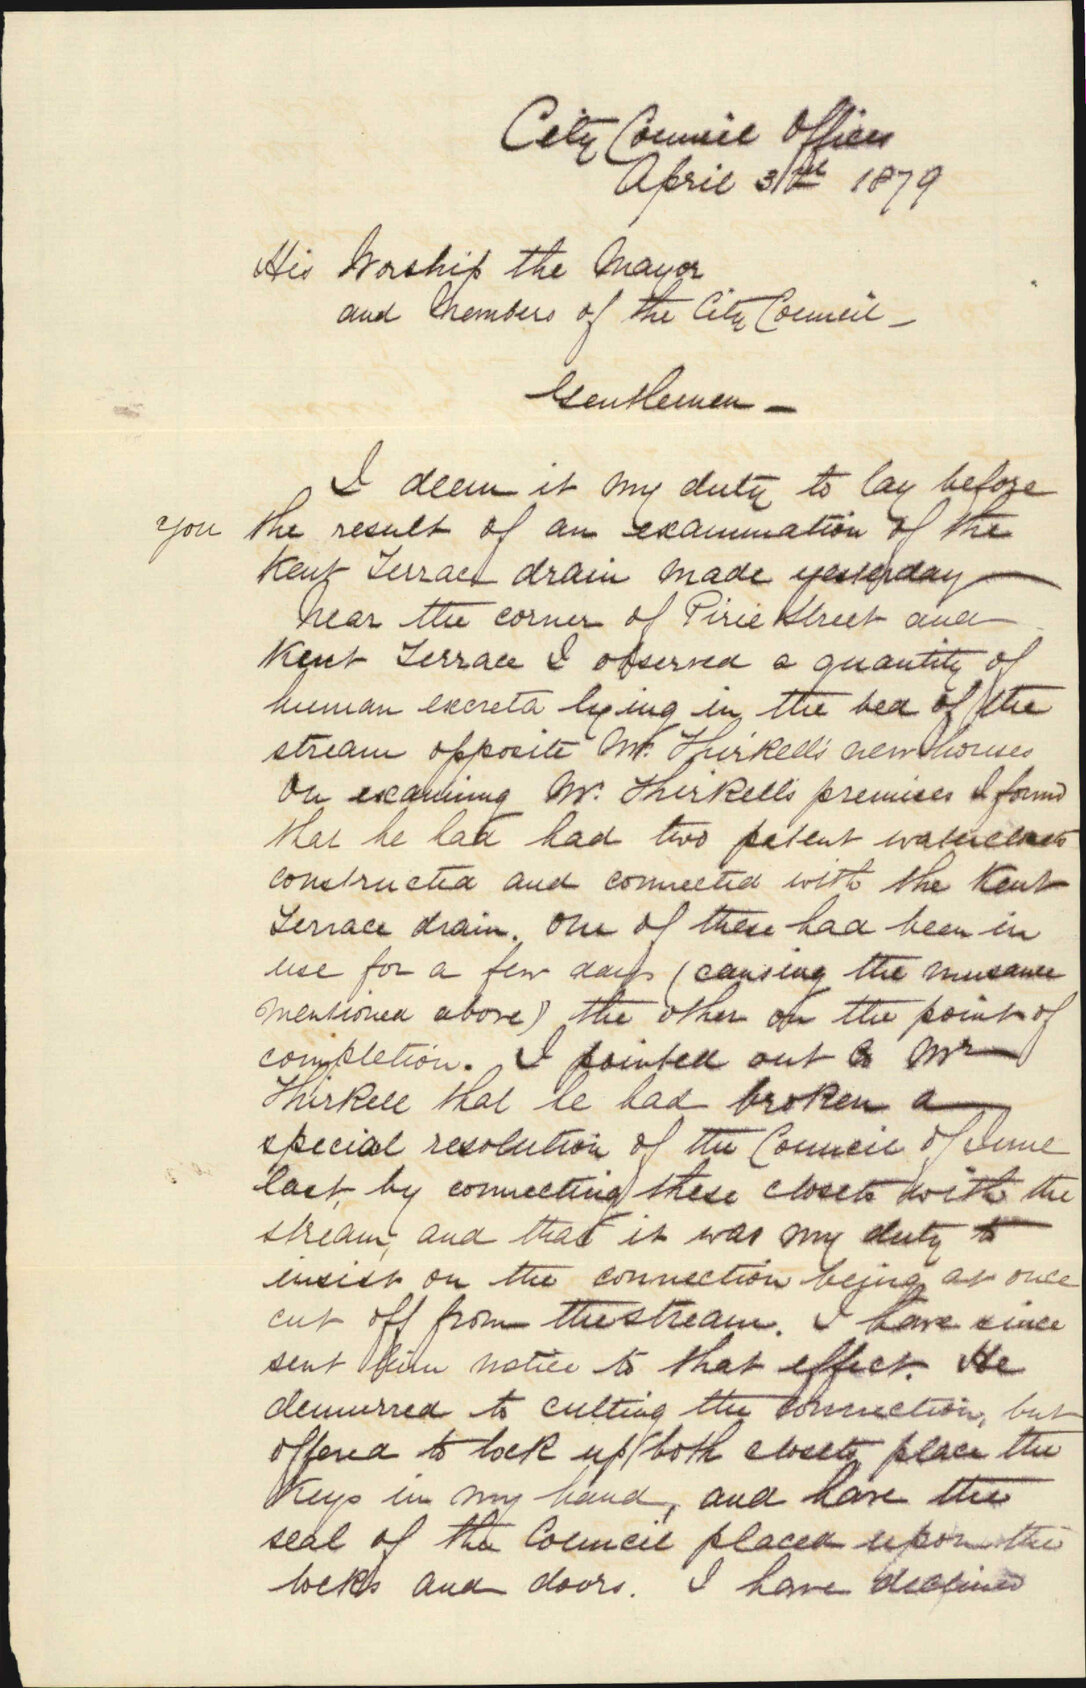 City Council Offices
April 3rd 1879
His Worship the Mayor
and Members of the City Council –
Gentlemen –
I deem it my duty to lay before
you the result of an examination of the
Kent Terrace drain made yesterday
Near the corner of Pirie Street and
Kent Terrace I observed a quantity of
human excreta lying in the bed of the
stream opposite Mr. Thirkell's new houses
On examining Mr. Thirkell's premises I found
that he had had two patent waterclosets
constructed and connected with the Kent
Terrace drain. One of these had been in
use for a few days (causing the nusance
mentioned above) the other on the point of
completion. I pointed out to Mr
Thirkell that he had broken a
special resolution of the Council of June
last, by connecting these closets with the
stream, and that it was my duty to
insist on the connection being at once
cut off from the stream. I have since
sent him notice to that effect. He
demurred to cutting the connection, but
offered to lock up both closets place the
keys in my hand, and have the
seal of the Council placed upon the
locks and doors. I have declined